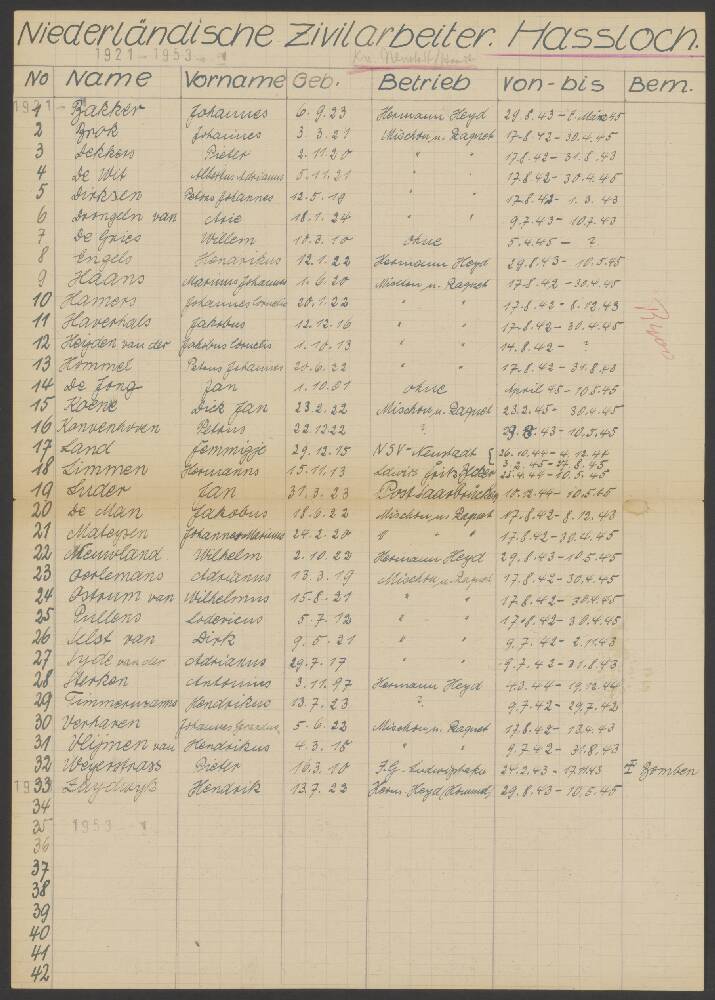 Niederländische Zivilarbeiter. Hassloch.
1921-1953
No Name Vorname Geb. Betrieb Von-bis Bem.
1 Bakker Johannes 6.9.23 Hermann Heyd 29.8.43-
2 Brok Johannes 3.3.21 Mischon u. Raquet 17.8.42-30.4.45
3 Dekkers Pieter 2.11.20 " " 17.8.42-31.8.43
4 De Wit Albertus Adrianus 5.11.21 " " 17.8.42-30.4.45
5 Dirksen Petrus Johannes 12.5.19 " " 17.8.42-1.3.43
6 Drongeln van Arie 18.1.24 " " 9.7.43-10.7.43
7 De Gries Willem 10 ohne 5.4.45- ?
8 Engels Hendrikus 12.1.22 Hermann Heyd 29.8.43-10.5.45
9 Haans Marinus Johannes 1.6.20 Mischon u. Raquet 17.8.42-30.4.45
10 Hamers Johannes Cornelis 20.1.22 " " 17.8.42-8.12.43
11 Haverhals Jakobus 12.12.16 " " 17.8.42-30.4.45
12 Heyden van der Jakobus Cornelis 1.10.13 " " 14.8.42- ?
13 Hommel Petrus Johannes 20.6.22 " " 17.8.42-31.8.43
14 De Jong Jan 1.10.01 ohne April 45-10.5.45
15 Koene Dirk Jan 23.2.22 Mischon u. Raquet 23.2.45-30.4.45
16 Konvenhoven Petrus 22.12.22 ? .43-10.5.45
17 Land Jemmigje 29.12.15 NSV-Neustadt { 26.10.44-4.12.44
18 Limmen Hermanns 15.11.13 Ludwig Fritz
19 Luder Jan 31.3.23 Post Saarbrücken 10.12.44-10.5.45
20 De Man Jakobus 18.6.22 Mischon u. Raquet 17.8.42-8.12.43
21 Mateysen Johannes Marinus 24.2.20 " " 17.8.42-30.4.45
22 Nieuwland Wilhelm 2.10.22 Hermann Heyd 29.8.43-10.5.45
23 Oerlemans Adrianus 13.3.19 Mischon u. Raquet 17.8.42-30.4.45
24 Ostrum van Wilhelmus 15.8.21 " " 17.8.42-30.4.45
25 Pullens Lodericus 5.7.12 " " 17.8.42-30.4.45
26 Uilst van Dirk 9.5.21 " " 9.7.42-2.11.43
27 Syde van der Adrianus 29.7.17 " " 9.7.42-31.8.43
28 Sterken Antonius 3.11.97 Hermann Heyd 4.3.44-19.12.44
29 Timmermanns Hendrikus 13.7.23 ? 9.7.42-29.7.42
30 Verharen Johannes 5.6.22 Mischon u. Raquet 17.8.42-13.4.43
31 Vlijmen van Hendrikus 4.3.15 " " 9.7.42-31.8.43
32 Weyerstrass Pieter 16.3.10 24.2.43-17.11.43 Bomben
33 Zuydwyk Hendrik 13.7.22 Herm. Heyd 29.8.43-10.5.45
34
35 1953
36
37
38
39
40
41
42